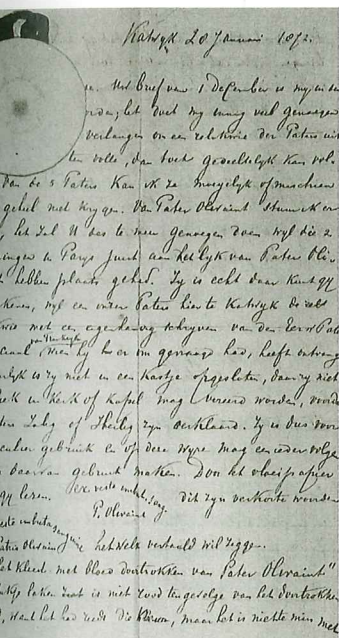 Katwyk 20 Januari 1872.
Uw brief van 1 December is my in de
het doet my innig veel genoegen
verlangen om een relikwie der Paters uit
ten volle, dan toch gedeeltelyk kan vol-
Van de 5 Paters kan ik ze moeyelyk of misschien
geheel niet krygen. Van Pater Olivaint stuur ik er
het zal U des te meer genoegen doen wyl die 2
ingen in Parys juist aan het lyk van Pater Oli-
hebben plaats gehad. Zy is echt daar kunt gy
wyl een onzer Paters hier te Katwyk dezelf
met een eigenhandig schryven van den Eerw Pater
wien hy er om gevraagd had, heeft ontvang
is zy niet in een kastje opgesloten, daar zy niet
in Kerk of Kapel mag vereerd worden, voorda
Zalig of Heilig zyn verklaard. Zy is dus voor
gebruik en op deze wyze mag een ieder
daarvan gebruik maken. Door het vloeipapier
gy lezen. Ex veste imbut. sang. dit zyn verkorte woorden
P. Olivaint
veste imbuta sanguine
Patris Olivaint hetwelk vertaald wil zeggen.
het kleed met bloed doortrokken van Pater Olivaint"
laken daar is niet rood tengevolge van het doortrokken
want het had reeds die kleur, maar het is niette min met